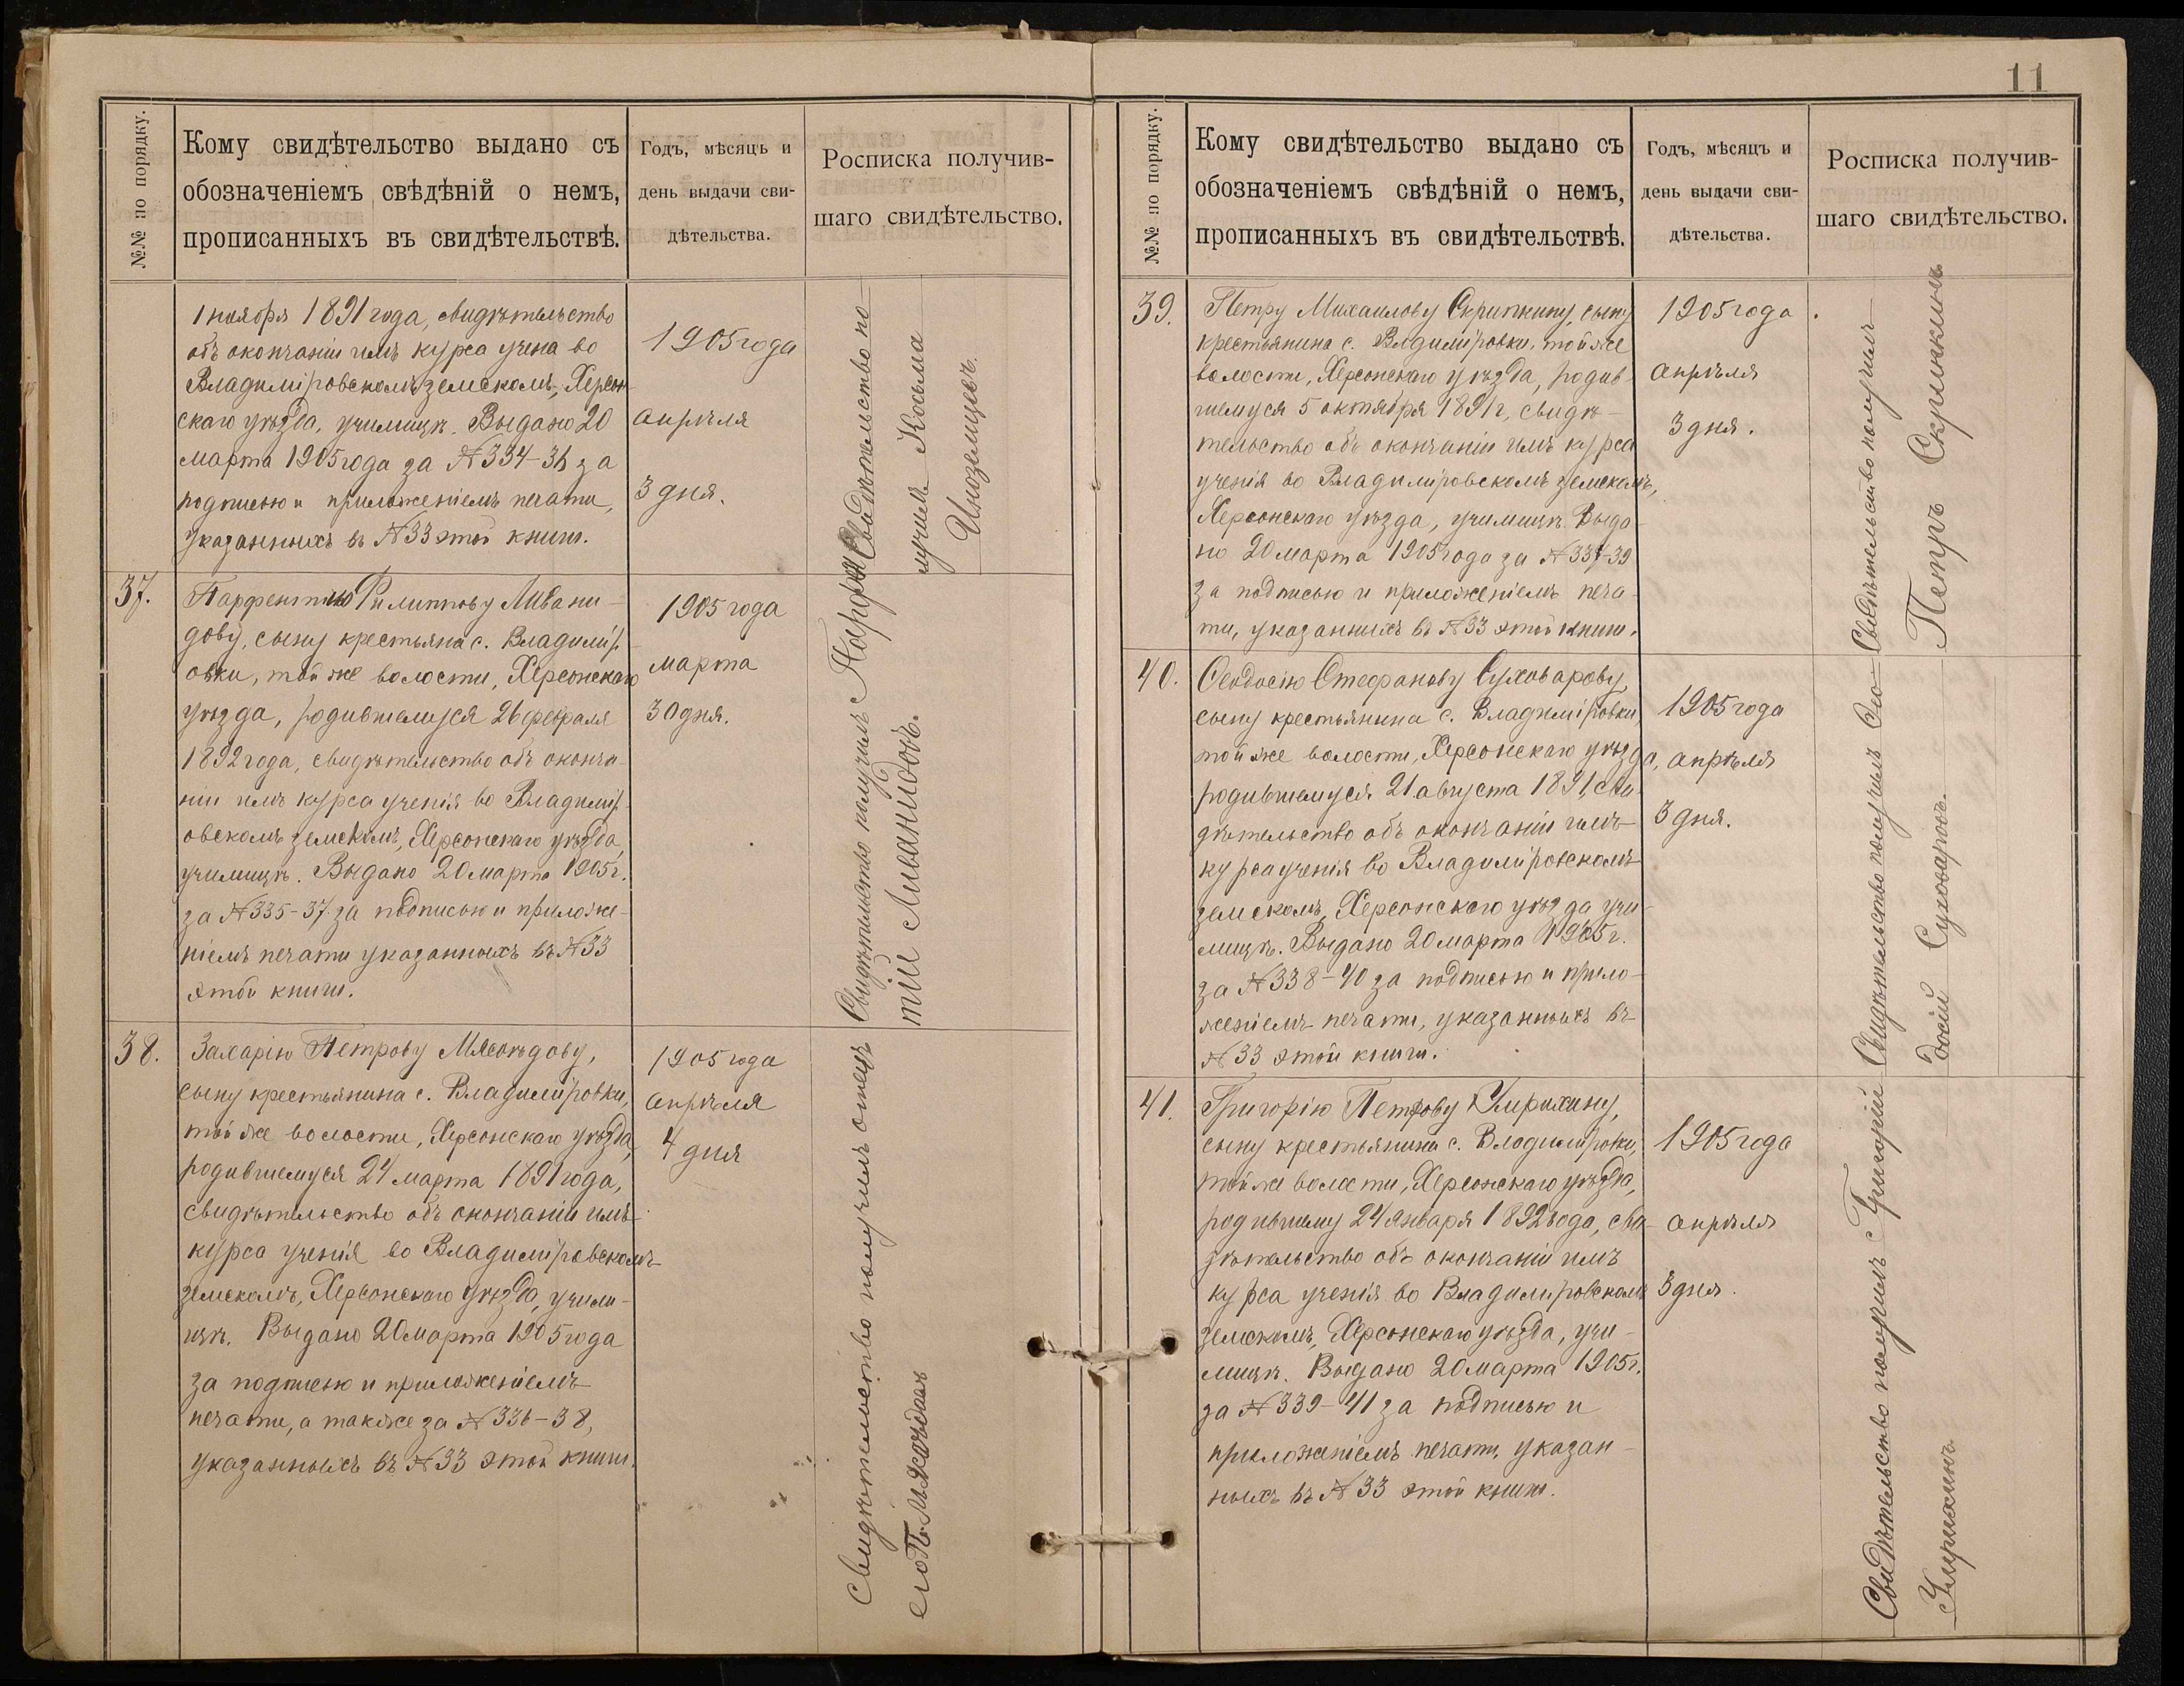 №№ по порядку.
Кому свидѣтельство выдано съ
обозначеніемъ свѣдѣній о немъ,
прописанныхъ въ свидѣтельствѣ.
Годъ, мѣсяцъ и
день выдачи сви-
дѣтельства.
Росписка получив-
шаго свидѣтельство.
1 ноября 1891 года, свидѣтельство
объ окончаніи имъ курса учена во
Владиміровскомъ земскомъ, Херсон-
скаго уѣзда, училищѣ. Выдано 20
марта 1905 года за № 334-36 за
подписью и приложеніемъ печати,
указанныхъ въ № 33 этой книги.
1905 года
апрѣля
3 дня.
Свидѣтельство по-
лучилъ Косьма
Иноземцевъ.
37.
Парфентію Филиппову Ливани-
дову, сыну крестьяна с. Владимір-
овки, той же волости, Херсонскаго
уѣзда, родившемуся 26 февраля
1892 года, свидѣтельство объ оконча-
ніи имъ курса ученія во Владимір-
овскомъ земскомъ, Херсонскаго уѣзда,
училищѣ. Выдано 20 марта 1905 г.
за № 335-37 за подписью и приложе-
ніемъ печати указанныхъ въ № 33
этой книги.
1905 года
марта
30 дня.
Свидѣтельство получилъ Парфен
тій Ливанидовъ.
38.
Захарію Петрову Мясоѣдову,
сыну крестьянина с. Владиміровки,
той же волости, Херсонскаго уѣзда,
родившемуся 24 марта 1891 года,
свидѣтельство объ окончаніи имъ
курса ученія во Владиміровскомъ
земскомъ, Херсонскаго уѣзда, учили-
щѣ. Выдано 20 марта 1905 года
за подписью и приложеніемъ
печати, а также за № 336-38,
указанныхъ въ № 33 этой книги.
1905 года
апрѣля
4 дня
Свидѣтельство получилъ отецъ
его П. Мясоѣдовъ
11
№№ по порядку.
Кому свидѣтельство выдано съ
обозначеніемъ свѣдѣній о немъ,
прописанныхъ въ свидѣтельствѣ.
Годъ, мѣсяцъ и
день выдачи сви-
дѣтельства.
Росписка получив-
шаго свидѣтельство.
39.
Петру Михаилову Скрипкину, сыну
крестьянина с. Владиміровки, той же
волости, Херсонскаго уѣзда, родив-
шемуся 5 октября 1891 г, свидѣ-
тельство объ окончаніи имъ курса
ученія во Владиміровскомъ земскомъ,
Херсонскаго уѣзда, училищѣ. Выда-
но 20 марта 1905 года за № 337-39
за подписью и приложеніемъ печа-
ти, указанныхъ въ № 33 этой книги.
1905 года
апрѣля
3 дня.
Свидѣтельство получилъ
Петръ Скрипкинъ
40.
Ѳеодосію Стефанову Суховарову,
сыну крестьянина с. Владиміровки,
той же волости, Херсонскаго уѣзда,
родившемуся 21 августа 1891, сви-
дѣтельство объ окончаніи имъ
курса ученія во Владиміровскомъ
земскомъ, Херсонскаго уѣзда учи-
лищѣ. Выдано 20 марта 1905 г.
за № 338-40 за подписью и прило-
женіемъ печати, указанныхъ въ
№ 33 этой книги.
1905 года
апрѣля
3 дня.
Свидѣтельство получилъ Ѳео-
досій Суховаровъ.
41.
Григорію Петрову Умрихину,
сыну крестьянина с. Владиміровки,
той же волости, Херсонскаго уѣзда,
родившему 24 января 1892 года, сви-
дѣтельство объ окончаніи имъ
курса ученія во Владиміровскомъ
земскомъ, Херсонскаго уѣзда, учи-
лищѣ. Выдано 20 марта 1905 г.
за № 339-41 за подписью и
приложеніемъ печати, указан-
ныхъ въ № 33 этой книги.
1905 года
апрѣля
3 дня.
Свидѣтельство получилъ Григорій
Умрихинъ